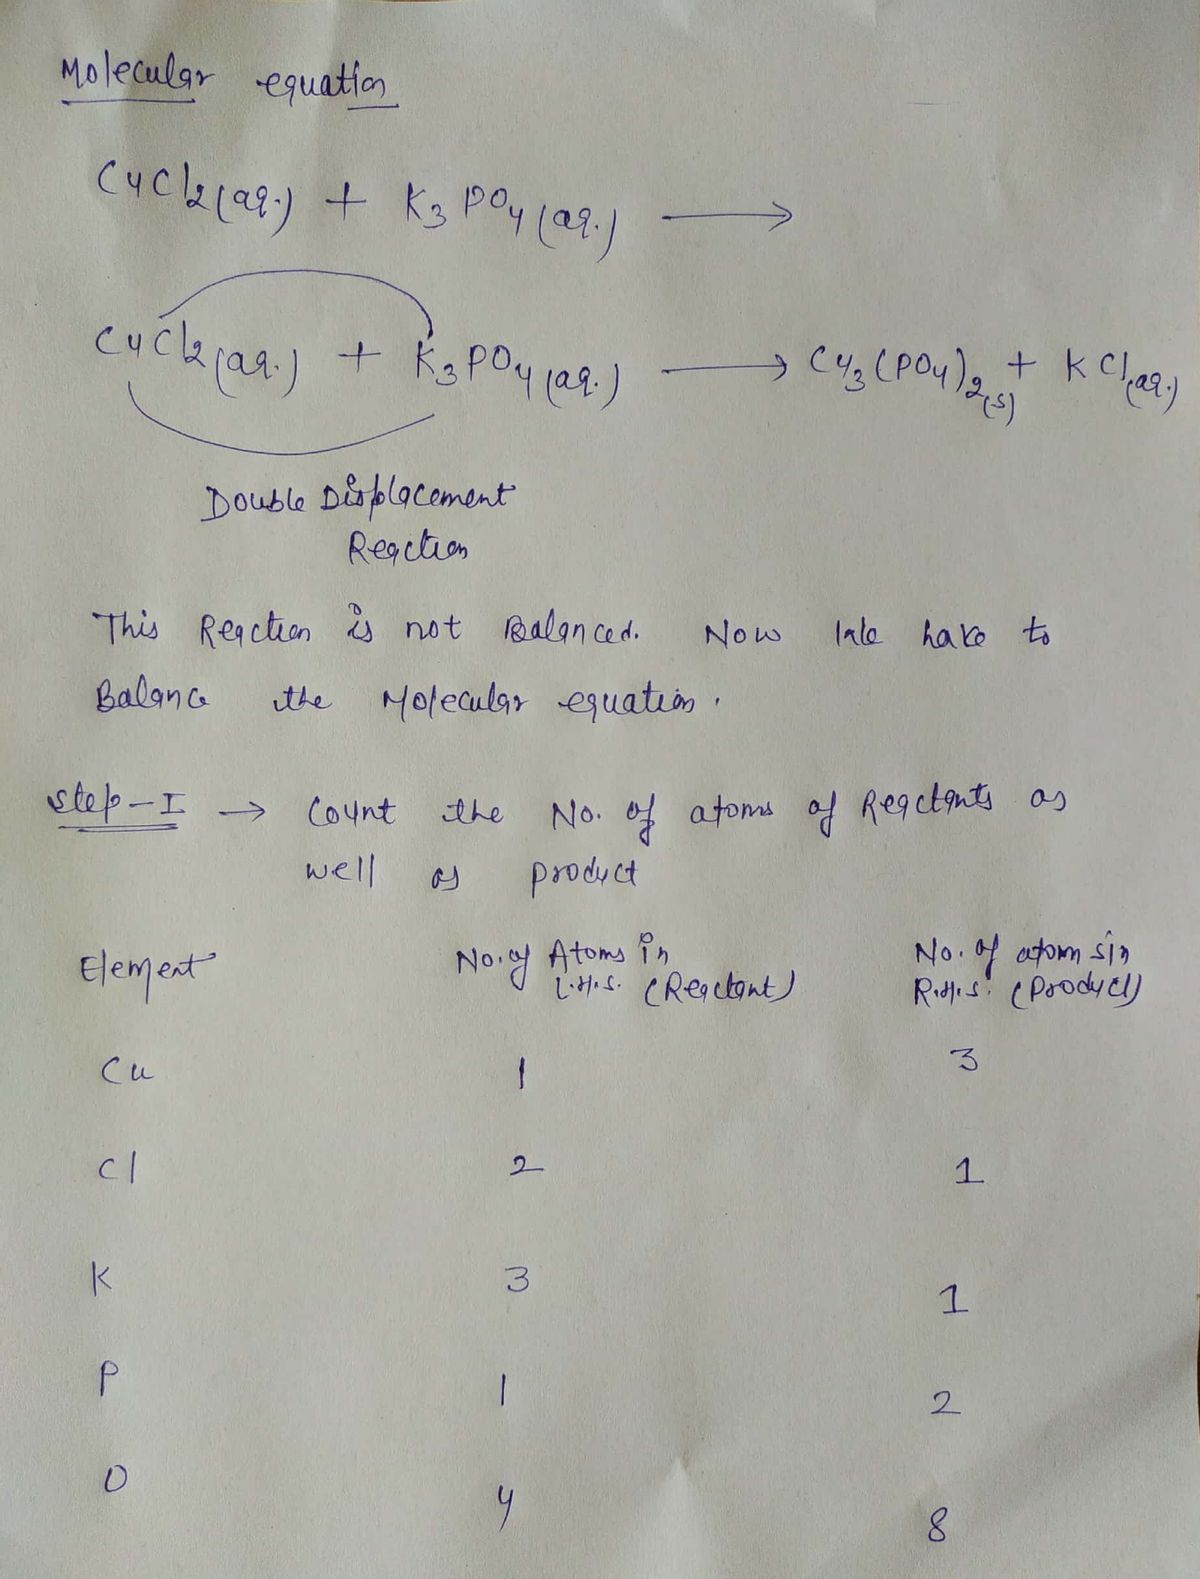 Molecular equation
CuCl2(aq.) + K3PO4(aq.) ⟶
CuCl2(aq.) + K3PO4(aq.) ⟶ Cu3(PO4)2(s) + KCl(aq.)
Double Displacement
Reaction
This Reaction is not Balanced. Now we have to
Balance the Molecular equation.
Step-I → Count the No. of atoms of Reactants as
well as product
Element No. of Atoms in L.H.S. (Reactant) No. of atoms in R.H.S. (Product)
Cu 1 3
Cl 2 1
K 3 1
P 1 2
O 4 8